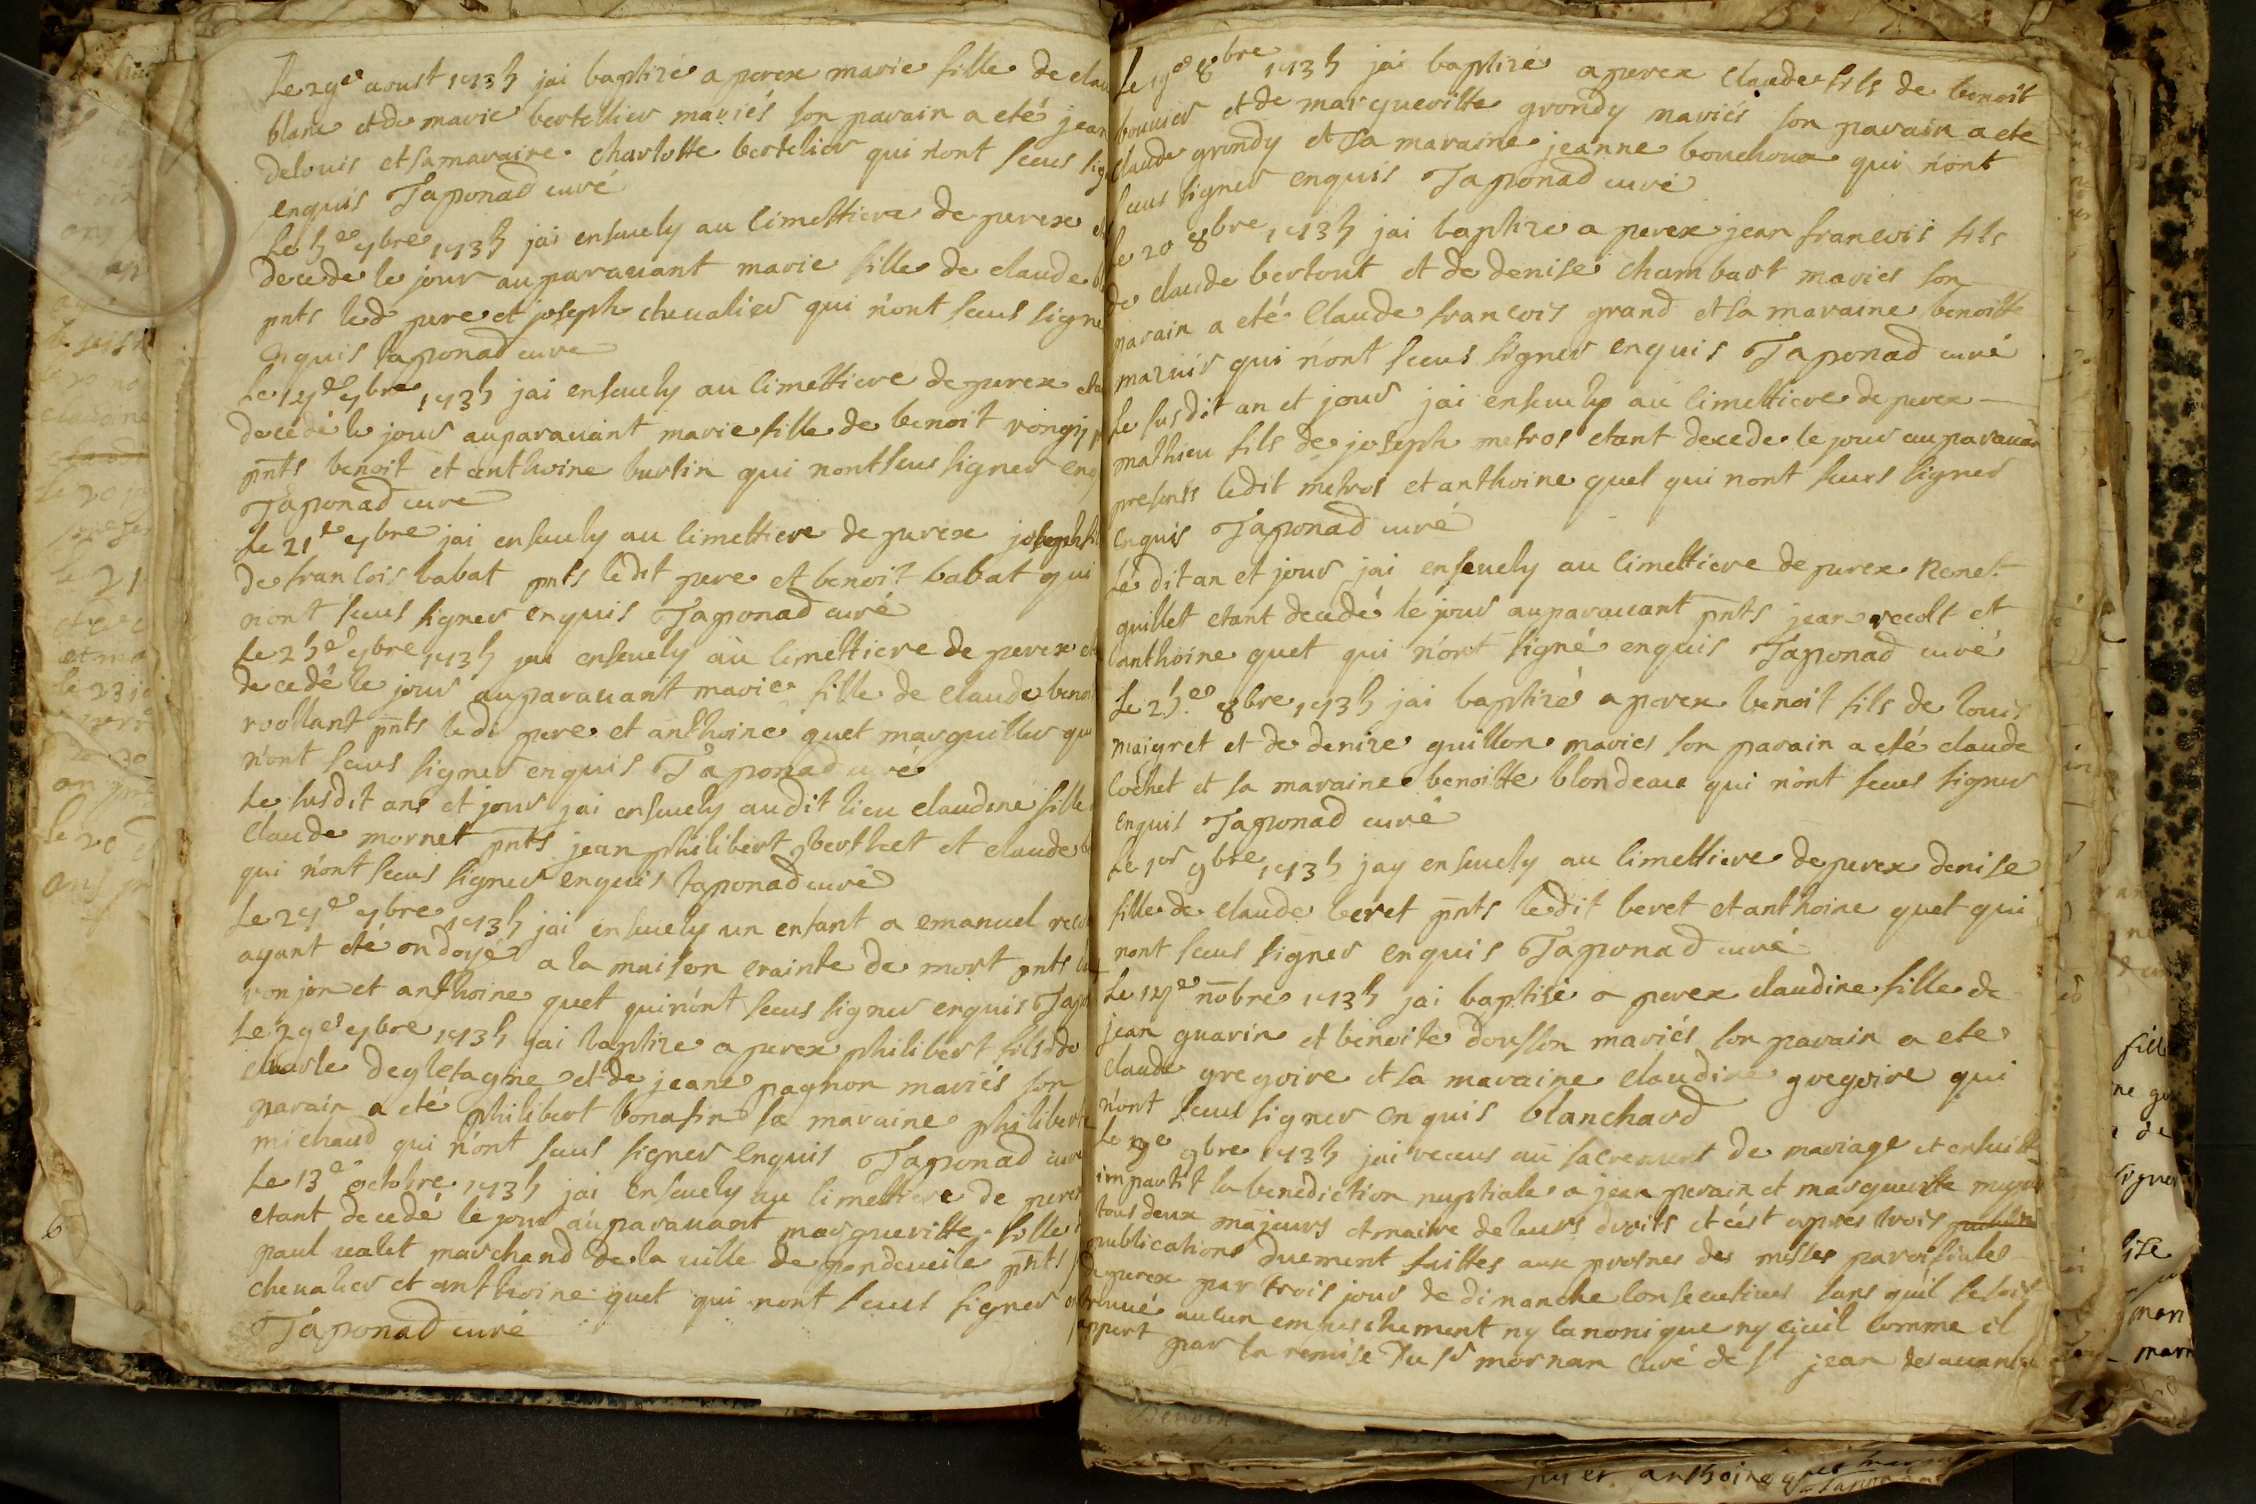 Le 29e aoust 1735 jai baptizé a perex marie fille de clau
blanc et de marie bertellier mariés son parain a eté jean
delouis et sa maraine charlotte bertelier qui n'ont sceus sig
enquis Taponad curé
Le 5e 7bre 1735 jai ensevely au cimettiere de perex
decede le jour auparavant marie fille de claude
pnts led pere et joseph chevalier qui n'ont sceus signe
enquis taponad cure
Le 14e 7bre 1735 jai ensevely au cimettiere de perex
decedé le jour auparavant marie fille de benoit
pnts benoit et anthoine burtin qui nont sceus signer enq
Taponad cure
Le 21e 7bre jai ensevely au cimettiere de perex joseph
de francois babat pnts ledit pere et benoit babat qui
n'ont sceus signer enquis Taponad curé
Le 25e 7bre 1735 jai ensevely au cimettiere de perex
decedé le jour auparavant marie fille de claude benoi
roollant pnts le di pere et anthoine quet marguillier qui
n'ont sceus signer enquis Taponad curé
Le susdit ans et jour jai ensevely audit lieu claudine fille
claude mornet pnts jean philibert berthet et claude
qui n'ont sceus signer enquis taponad curé
Le 27e 7bre 1735 jai ensevely un enfant a emanuel
ayant eté ondoyé a la maison crainte de mort pnts
ronjon et anthoine quet qui n'ont sceus signer enquis Tapo
Le 29e 7bre 1735 jai baptize a perex philibert fils de
charle degletagne et de jeane pagnon mariés son
parain a eté philibert bonafin sa maraine philiberte
michaud qui n'ont sceus signer enquis Taponad curé
Le 13e octobre 1735 jai ensevely au cimettiere de perex
etant decedé le jour auparavant margueritte fille
paul valet marchand de la ville de pondeveile pnts
chevalier et anthoine quet qui nont sceus signer
Taponad curé
Le 19e 8bre 1735 jai baptizé a perex claude fils de benoit
bouvier et de margueritte grondy mariés son parain a ete
claude grondy et sa maraine jeanne bouchoux qui n'ont
sceus signer enquis Taponad curé
Le 20 8bre 1735 jai baptize a perex jean francois fils
de claude bertout et de denise chambart maries son
parain a eté claude francois grand et sa maraine benoitte
qui n'ont sceus signer enquis Taponad curé
Le susdit an et jour jai ensevely au cimettiere de perex
mathieu fils de joseph metros etant decede le jour auparavan
presents ledit metros et anthoine quet qui nont sceus signer
enquis Taponad curé
Le dit an et jour jai ensevely au cimettiere de perex
guillet etant decedé le jour auparavant pnts jean et
anthoine quet qui n'ont signé enquis Taponad curé
Le 25e 8bre 1735 jai baptizé a perex benoit fils de louis
maigret et de denize guillon maries son parain a eté claude
cochet et sa maraine benoitte blondeau qui n'ont sceus signer
enquis Taponad curé
Le 1er 9bre 1735 jay ensevely au cimettiere de perex denise
fille de claude beret pnts ledit beret et anthoine quet qui
nont sceus signer enquis Taponad curé
Le 14e nobre 1735 jai baptisé a perex claudine fille de
jean guarin et benoite mariés son parain a ete
claude gregoire et sa maraine claudine gregoire qui
n'ont sceus signer enquis blanchard
Le 9bre 1735 jai receus au sacrement de mariage et ensuitte
impartit la benediction nuptiale a jean perain et margueritte
tous deux majeurs et maitre de leurs droits et c'est apres trois
publications duement faittes aux prosnes des messes paroissiales
a perex par trois jours de dimanche consecutives sans qu'il se soit
trouvé aucun empeschement ny canonique ny civil comme il
appert par la remise du sr mornan curé de st jean desavantur